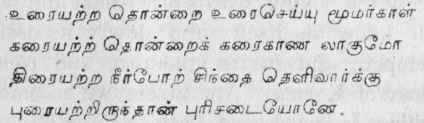 உரையற்ற தொன்றை உரைசெய்யு மூமர்காள்
கரையற்ற் தொன்றைக் கரைகாண லாகுமோ
திரையற்ற நீர்போற் சிந்தை தெளிவார்க்கு
புரையற்றிருந்தாண் புரிசடையோனே.